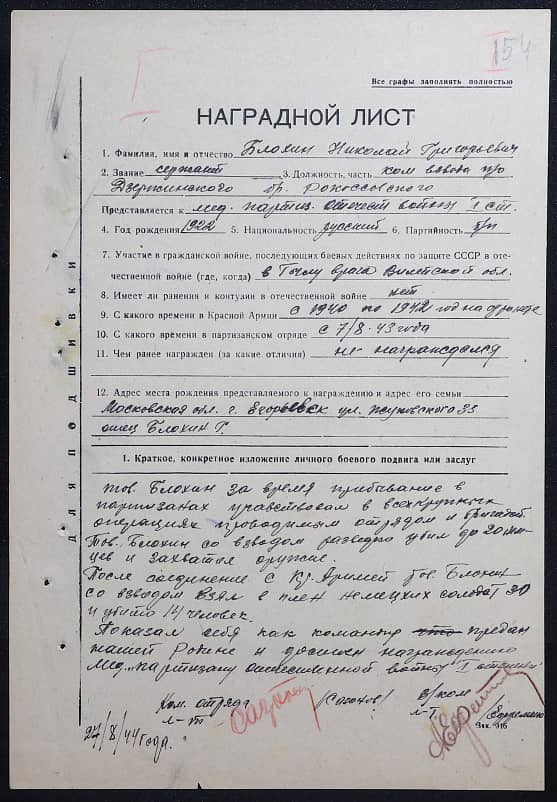 154
Все графы заполнять полностью
НАГРАДНОЙ ЛИСТ
1. Фамилия, имя и отчество Блохин Николай Григорьевич
2. Звание сержант 3. Должность, часть ком взвода п/о
Дзержинского бр. Рокоссовского
Представляется к мед. партиз. отечест войны I ст.
4. Год рождения 1922 5. Национальность русский 6. Партийность б/п
7. Участие в гражданской войне, последующих боевых действиях по защите СССР в оте-
чественной войне (где, когда) в Тылу врага Вилейской обл.
8. Имеет ли ранения и контузии в отечественной войне нет
9. С какого времени в Красной Армии с 1940 по 1942 год на фронте
10. С какого времени в партизанском отряде с 7/8-43 года
11. Чем ранее награжден (за какие отличия) не награждался
12. Адрес места рождения представляемого к награждению и адрес его семьи
Московская обл. г. Егорьевск ул. 33
отец Блохин Г.
1. Краткое, конкретное изложение личного боевого подвига или заслуг
тов. Блохин за время прибывание в
партизанах учавствовал в всех крупных
операциях проводимым отрядом и бригадой.
Тов. Блохин со взводом разведки убил до 20 нем-
цев и захватил оружие.
После соединение с Кр. Армией тов Блохин
со взводом взял в плен немецких солдат 30
и убито 14 человек.
Показал себя как командир предан
нашей Родине и достоин награждению
мед. партизану отечественной войны I степени
Ком. отряда
л-т
/Сазонов/
л-т
/Ефременко
27/8/44 года.
Зак. 316
для подшивки